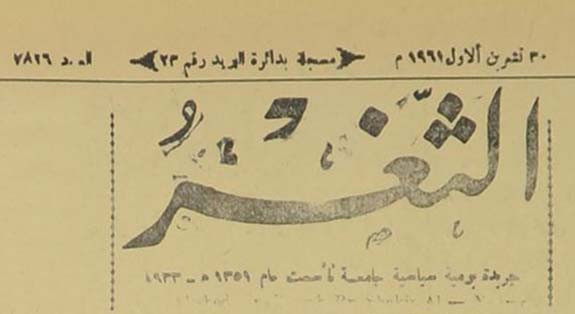 ٣٠ تشرين الاول ١٩٦١ م مسجلة بدائرة البريد رقم ٢٣ العدد ٧٨٢٦
الثَّغْرُ
جريدة يومية سياسية جامعة تأسست عام ١٣٥١ هـ - ١٩٣٣